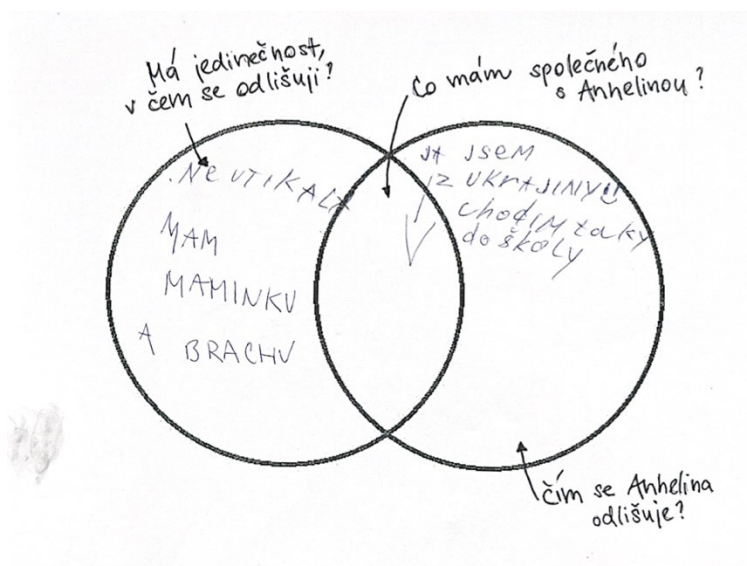 Má jedinečnost,
v čem se odlišuji?
Co mám společného
s Anhelinou?
.NEUTIKALA
MAM
MAMINKU
A BRACHU
JA JSEM
IZ UKRAJINY!!
chodIM taky
do školy
čím se Anhelina
odlišuje?